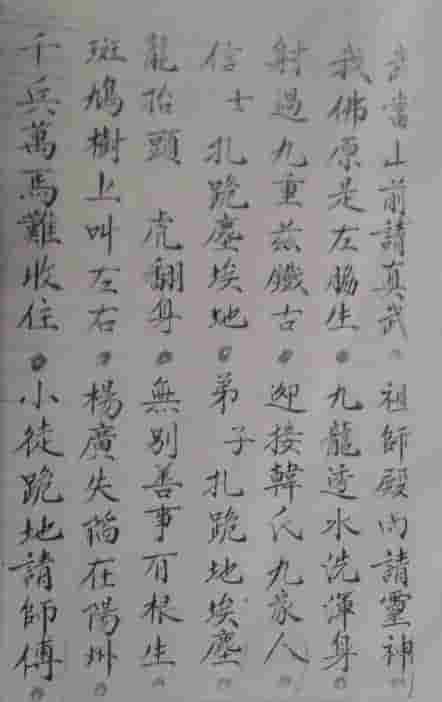 武當山前請真武。祖師殿内請靈神。
我佛原是左脇生。九龍透水洗渾身。
射過九重兹鐵古。迎接韓氏九家人。
信士扎跪塵埃地。弟子扎跪地埃塵。
龍抬頭 虎翻身。無别善事有根生。
斑鳩樹上叫左右。楊廣失陷在陽州。
千兵萬馬難收住。小徒跪地請師傅。